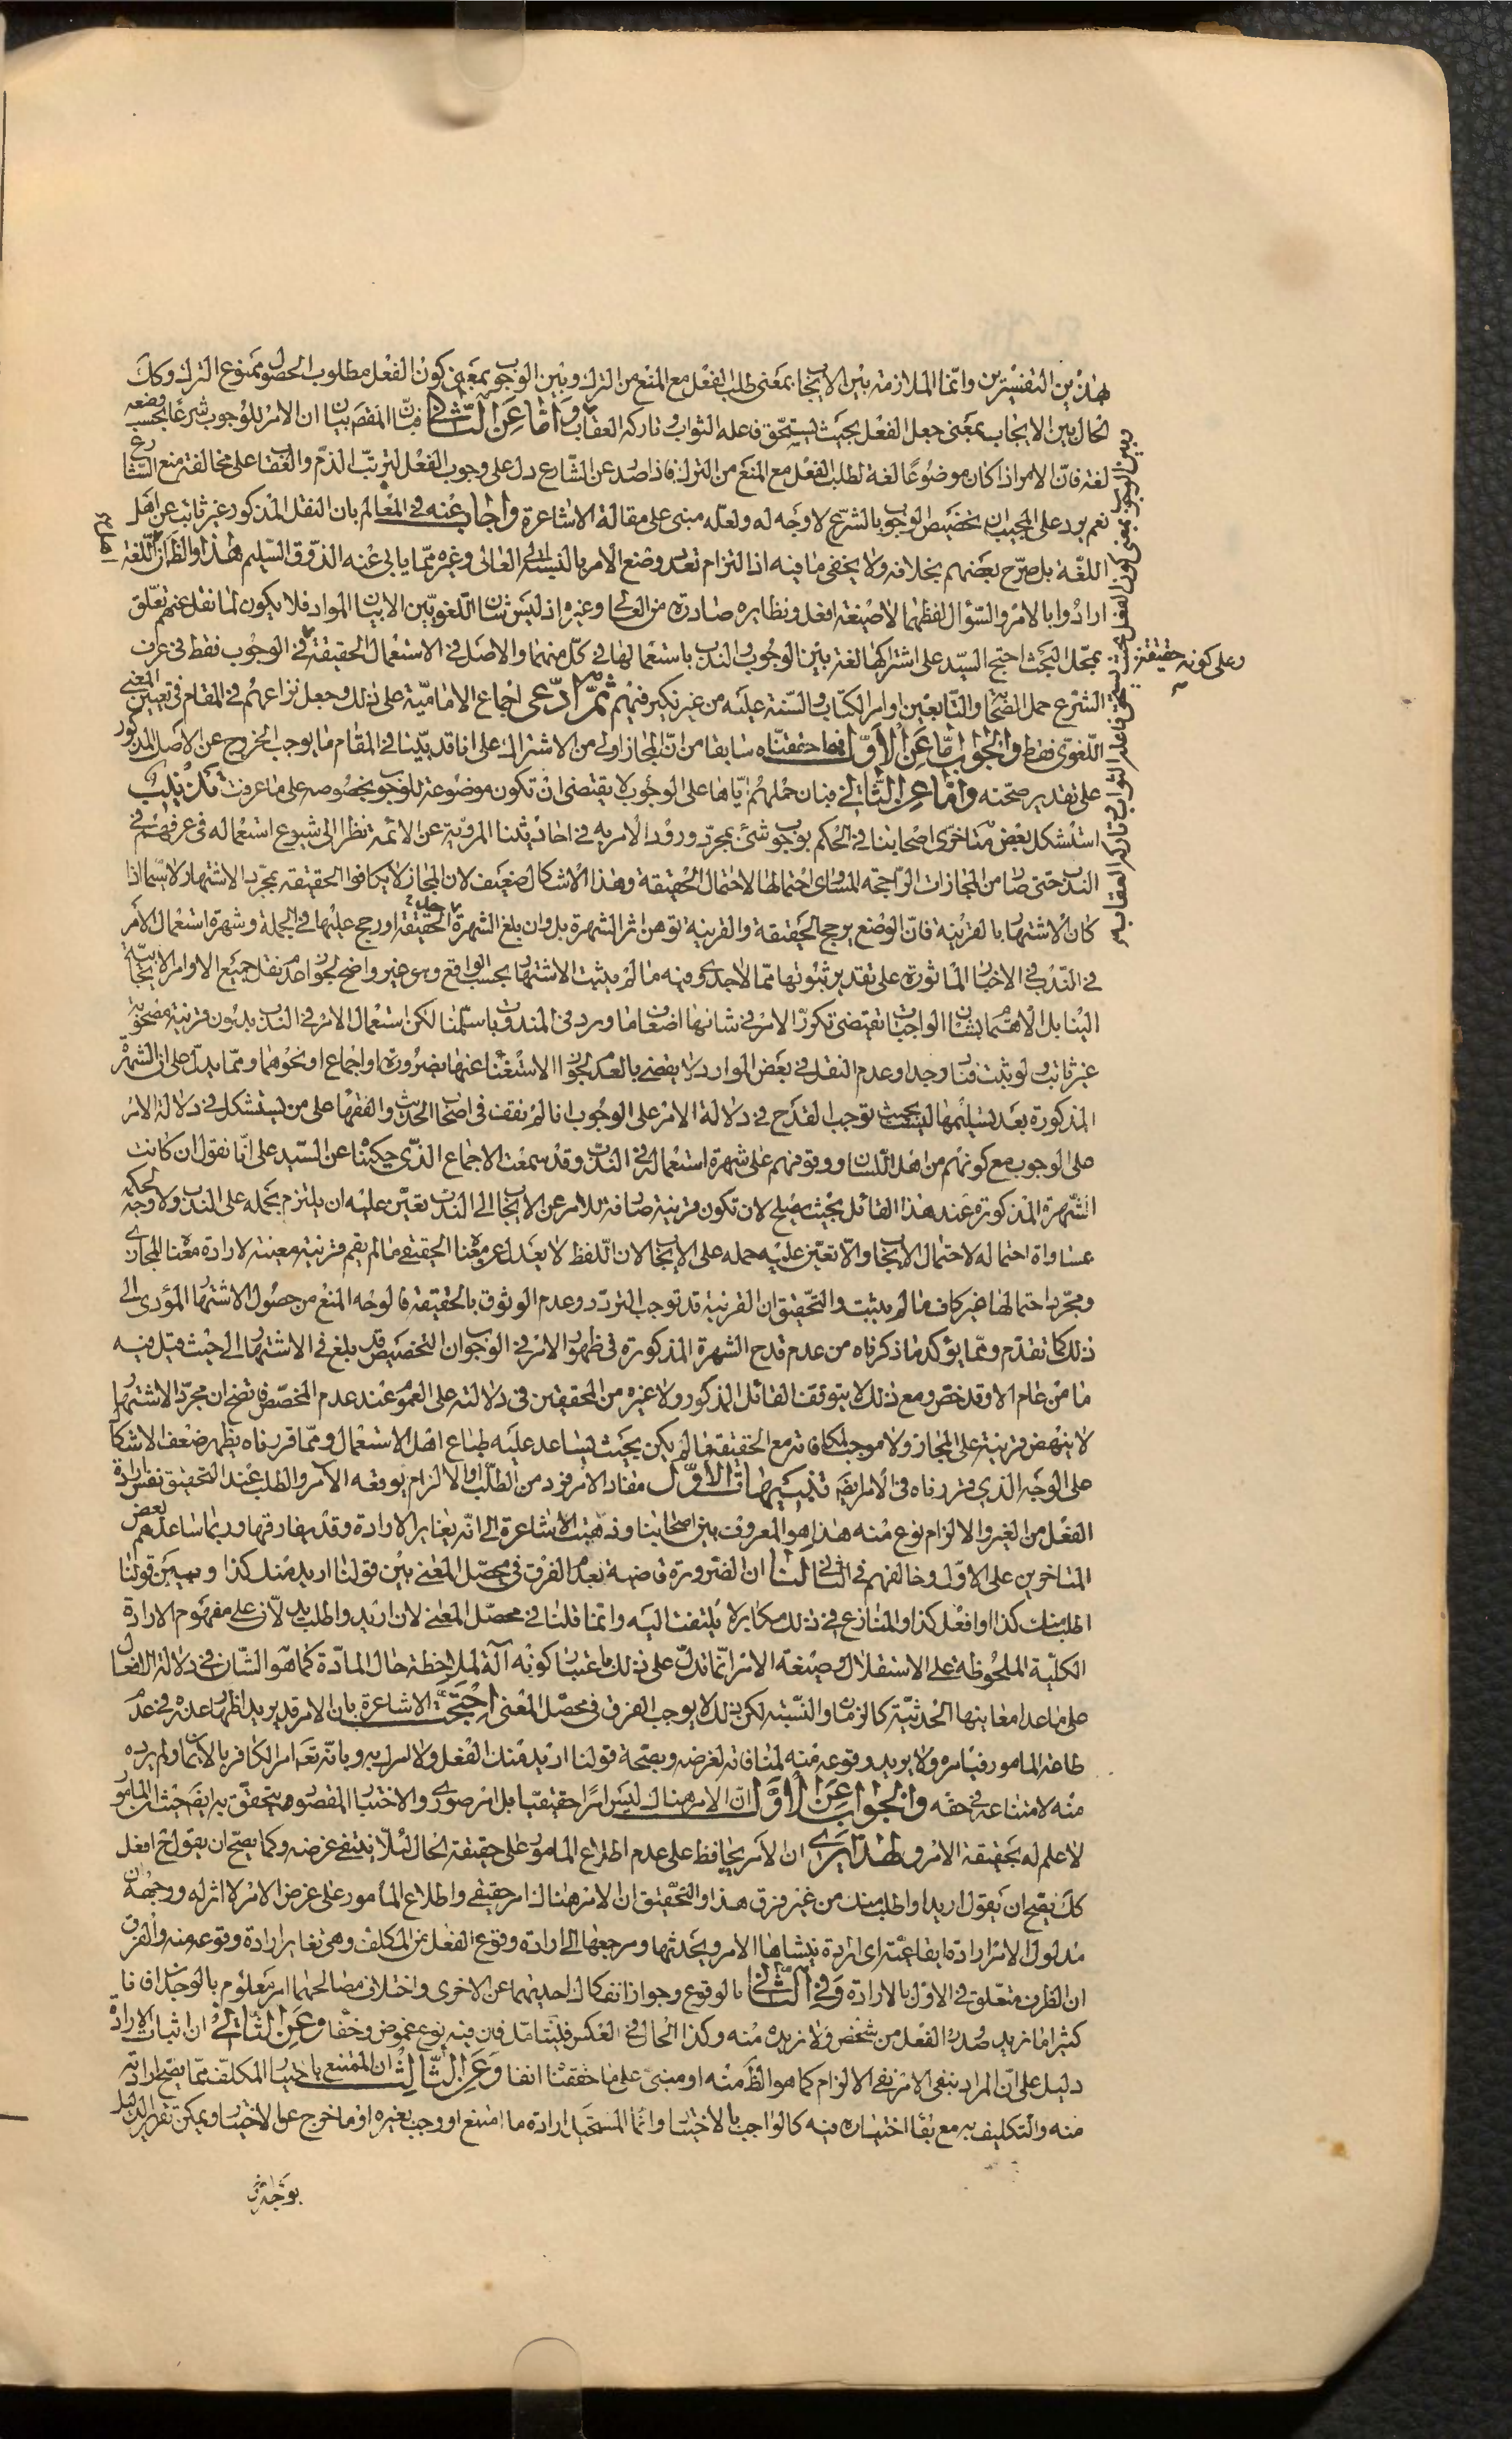 هذين التفسيرين وانما الملازمة بين الايجاب بمعنى طلب الفعل مع المنع من الترك وبين الوجوب بمعنى كون الفعل مطلوب الحصول ممنوع الترك وكك
الحال بين الايجاب بمعنى جعل الفعل بحيث يستحق فاعله الثواب وتاركه العقاب واما عن الثاني فبان المقصود بيان ان الامر للوجوب شرعا بحسب وضعه
لغة فان الامر اذا كان موضوعا لغة لطلب الفعل مع المنع من الترك فاذا صدر عن الشارع دل على وجوب الفعل لترتب الذم والعقاب على مخالفة منع الشارع
نعم يرد على المجيب ان تخصيص الوجوب بالشرع لا وجه له ولعله مبنى على مقالة الاشاعرة واجاب عنه في المعالم بان النقل المذكور غير ثابت عن اهل
اللغة بل صرح بعضهم بخلافه ولا يخفى ما فيه اذ التزام تعدد وضع الامر بالنسبة الى العالى وغيره مما يابى عنه الذوق السليم هذا والظ ان اهل اللغة
ارادوا بالامر والسؤال لفظهما لا صيغة افعل ونظايره صادرة من العالى وغيره اذ ليس شان اللغويين الا بيان المواد فلا يكون لما نقل عنهم تعلق
بمحل البحث احتج السيد على اشتراكها لغة بين الوجوب والندب باستعمالها في كل منهما والاصل في الاستعمال الحقيقة وعلى كونه حقيقة في الوجوب فقط في عرف
الشرع حمل الصحابة والتابعين اوامر الكتاب والسنة عليه من غير نكير فيهم ثم ادعى اجماع الامامية على ذلك وجعل نزاعهم في المقام في تعيين المعنى
اللغوى فقط والجواب اما عن الاول فبما حققناه سابقا من ان المجاز اولى من الاشتراك على انا قد بينا في المقام ما يوجب الخروج عن الاصل المذكور
على تقدير صحته واما عن الثاني فبان حملهم اياها على الوجوب لا يقتضى ان تكون موضوعة للوجوب بخصوصه على ما عرفت تذنيب
استشكل بعض متاخرى اصحابنا في الحكم بوجوب شئ بمجرد ورود الامر به في احاديثنا المروية عن الائمة نظرا الى شيوع استعماله في عرفهم في
الندب حتى صار من المجازات الراجحة المساوى احتمالها لاحتمال الحقيقة وهذا الاشكال ضعيف لان المجاز لا يكافوا الحقيقة بمجرد الاشتهار ولا سيما اذا
كان الاشتهار بالقرينة فان الوضع يرجح الحقيقة والقرينة توهن اثر الشهرة بل وان بلغ الشهرة حدا الحقيقة او رجح عليها في الجملة وشهرة استعمال الامر
في الندب في الاخبار الماثورة على تقدير ثبوتها مما لا جدوى فيه ما لم يثبت الاشتهار بحسب الواقع وهو غير واضح لجواز عدم نقل جميع الاوامر الايجابية
الينا بل الاهتمام بشان الواجبات تقتضى تكرر الامر في شانها اضعاف ما ورد في المندوبات سلمنا لكن استعمال الامر في الندب بدون قرينة مصحوبة
غير ثابت ولو ثبت فنادر جدا وعدم النقل في بعض الموارد لا يقضى بالعدم لجواز الاستغناء عنها بضرورة او اجماع او نحوهما ومما يدل على ان الشهرة
المذكورة بعد تسليمها ليست بحيث توجب القدح في دلالة الامر على الوجوب انا لم نقف في اصحاب الحديث والفقهاء على من يستشكل في دلالة الامر
على الوجوب مع كونهم من اهل اللسان ووقوفهم على شهرة استعماله في الندب وقد سمعت الاجماع الذى حكيناه عن السيد على انا نقول ان كانت
الشهرة المذكورة عند هذا القائل بحيث يصلح لان تكون قرينة صارفة للامر عن الايجاب الى الندب تعين عليه ان يلتزم بحمله على الندب ولا وجه لحكمه
بمساواة احتماله لاحتمال الايجاب والا تعين عليه حمله على الايجاب لان اللفظ لا يعدل عن معناه الحقيقى ما لم يقم قرينة معينة لارادة معناه المجازى
ومجرد احتمالها غير كاف ما لم يثبت والتحقيق ان القرينة قد توجب التردد وعدم الوثوق بالحقيقة فالوجه المنع من حصول الاشتهار المؤدى الى
ذلك كما تقدم ومما يؤكد ما ذكرناه من عدم قدح الشهرة المذكورة في ظهور الامر في الوجوب ان التخصيص قد بلغ في الاشتهار الى حيث قيل فيه
ما من عام الا وقد خص ومع ذلك لا يتوقف القائل المذكور ولا غيره من المحققين في دلالته على العموم عند عدم المخصص فاتضح ان مجرد الاشتهار
لا ينهض قرينة على المجاز ولا موجبا لمكافاته مع الحقيقة ما لم يكن بحيث يساعد عليه طباع اهل الاستعمال ومما قررناه يظهر ضعف الاشكال
على الوجه الذي قررناه في الامر ايض تنبيهات الاول مفاد الامر فرد من الطلب او الالزام يوقعه الآمر والطلب عند التحقيق نفس ارادة
الفعل من الغير والالزام نوع منه هذا هو المعروف بين اصحابنا وذهبت الاشاعرة الى انه يغاير الارادة وقد يفارقها وربما ساعدهم بعض
المتاخرين على الاول وخالفهم في الثانى لنا ان الضرورة قاضية بعدم الفرق في محصل المعنى بين قولنا اريد منك كذا وبين قولنا
اطلب منك كذا او افعل كذا والمنازع في ذلك مكابر لا يلتفت اليه وانما قلنا في محصل المعنى لان اريد واطلب يدلان على مفهوم الارادة
الكلية الملحوظة على الاستقلال وصيغة الامر انما تدل على ذلك باعتبار كونه آلة لملاحظة حال المادة كما هو الشان في دلالة الافعال
على ما عدا معانيها الحدثية كالزمان والنسبة لكن ذلك لا يوجب الفرق في محصل المعنى احتجت الاشاعرة بان الامر قد يريد اظهار عذره في عدم
طاعة المامور فيامره ولا يريد وقوعه منه لمنافاته لغرضه وبصحة قولنا اريد منك الفعل ولا امرك به وبانه تعالى امر الكافر بالايمان ولم يرده
منه لامتناعه في حقه والجواب عن الاول ان الامر هناك ليس امرا حقيقيا بل امر صورى والاختبار المقصود يتحقق به ايض حيث ان المامور
لا علم له بحقيقة الامر ولهذا يرى ان الآمر يحافظ على عدم اطلاع المامور على حقيقة الحال لئلا ينتفى غرضه وكما يصح ان يقول ح افعل
كك يصح ان يقول اريد او اطلب منك من غير فرق هذا والتحقيق ان الامر هناك امر حقيقى واطلاع المأمور على غرض الامر لا اثر له ووجهه ان
مدلول الامر ارادة ايقاعية اى ارادة ينشاها الامر ويحدثها ومرجعها الى ارادة وقوع الفعل من المكلف وهى تغاير ارادة وقوعه منه والفرق
ان الظرف متعلق في الاول بالارادة وفي الثاني بالوقوع وجواز انفكاك احديهما عن الاخرى واختلاف مصالحهما امر معلوم بالوجدان فانا
كثيرا ما نريد صدور الفعل من شخص ولا نريده منه وكذا الحال في العكس فليتامل فان فيه نوع غموض وخفاء وعن الثاني ان اثبات الارادة
دليل على ان المراد بنفى الامر نفى الالزام كما هو الظ منه او مبنى على ما حققنا انفا وعن الثالث ان الممتنع باختيار المكلف مما يصح ارادته
منه والتكليف به مع بقاء اختياره فيه كالواجب بالاختيار وانما المستحيل ارادة ما امتنع او وجب بغيره او ما خرج عن الاختيار ويمكن تقرير الدليل
بوجه اخر
وبين الوجوب بمعنى كون الفعل بحيث يستحق فاعله الثواب وتاركه العقاب
وعلى كونه حقيقة